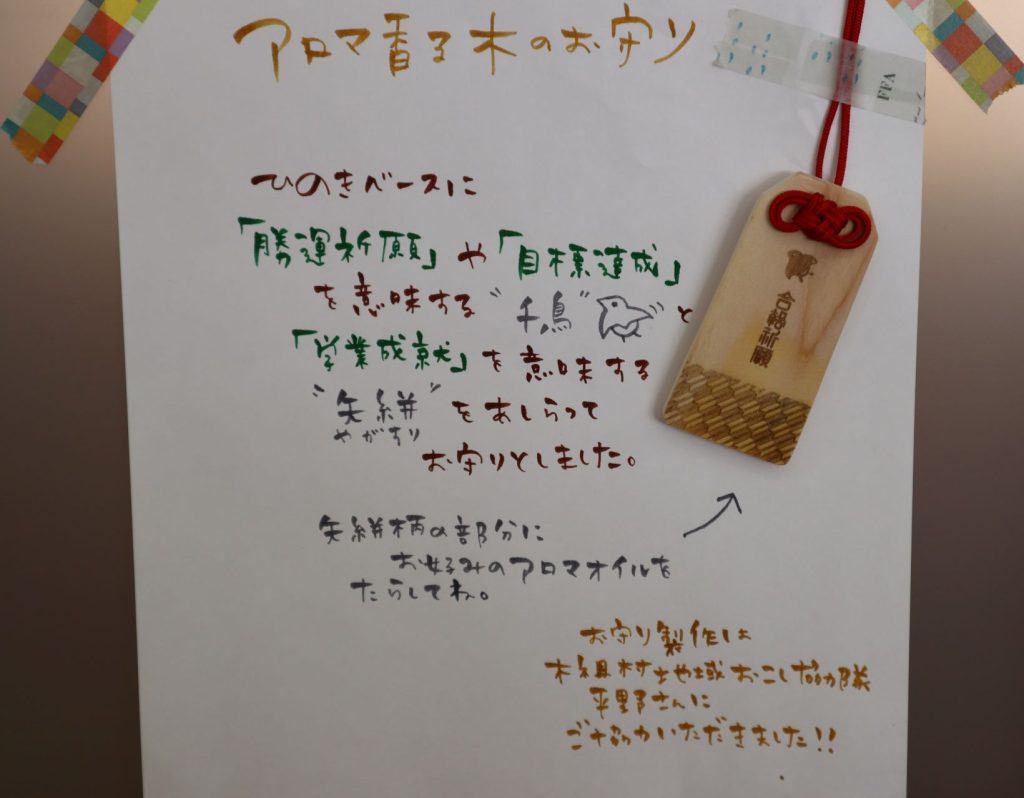 アロマ香る木のお守り
FFA
ひのきベースに
「勝運祈願」や「目標達成」
を意味する"千鳥" "と
「学業成就」を意味する
"矢絣"をあしらって
やがすり
お守りとしました。
合格祈願
矢絣柄の部分に
お好みのアロマオイルを
たらしてね。
お守り製作は
木祖村地域おこし協力隊
平野さんに
ご協力いただきました!!